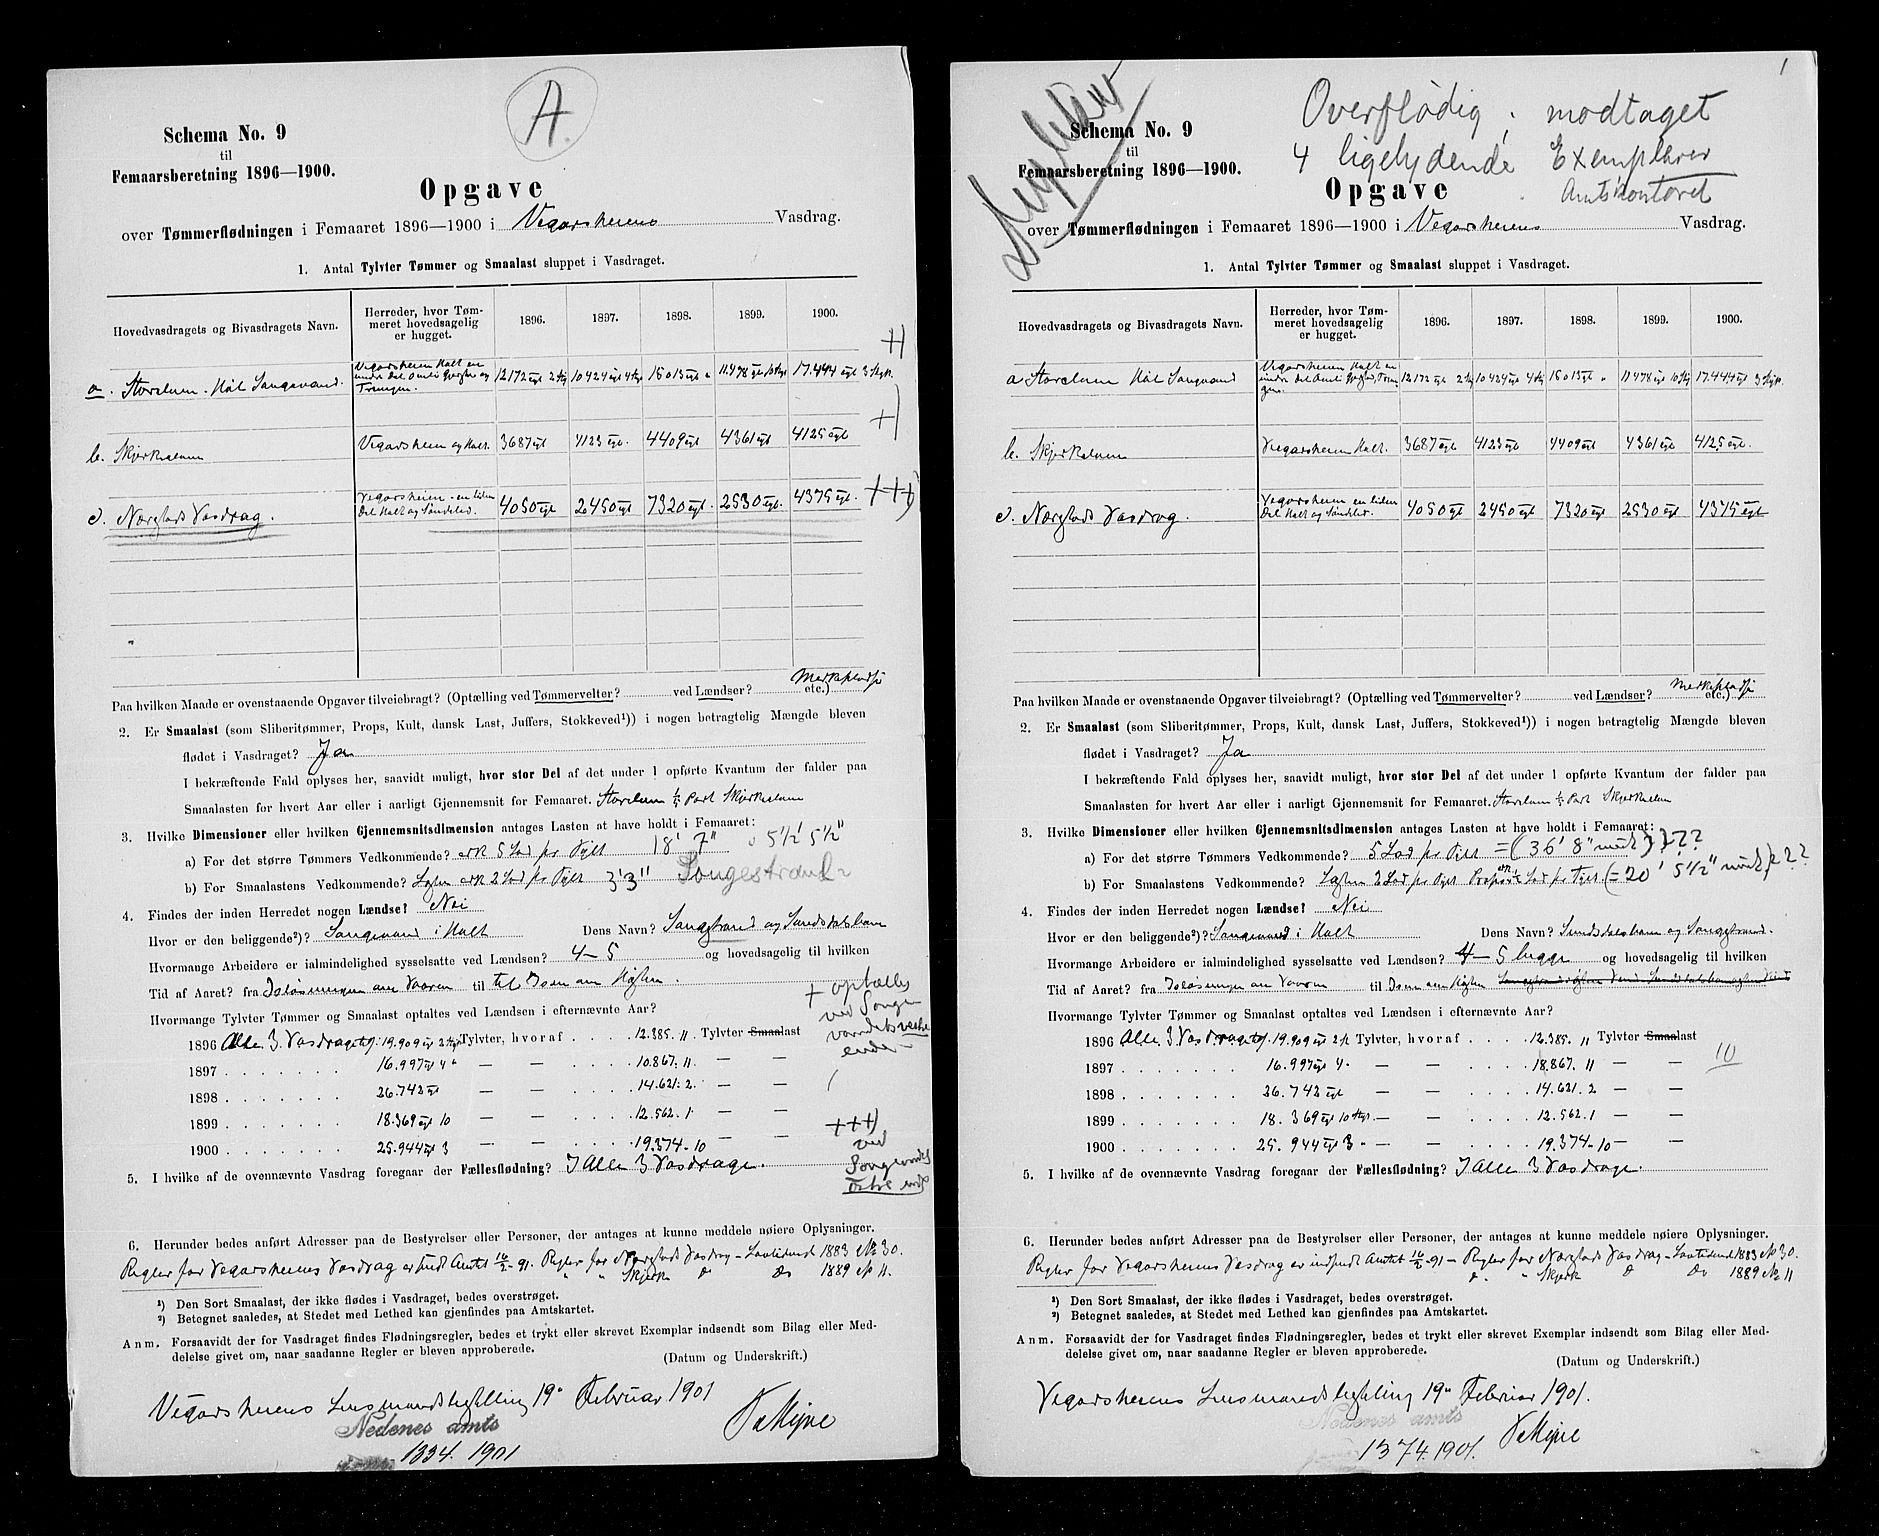 A.
Schema No. 9
til
Femaarsberetning 1896—1900.
Opgave
over Tømmerflødningen i Femaaret 1896—1900 i Vegarsheiens Vasdrag.
1. Antal Tylvter Tømmer og Smaalast sluppet i Vasdraget.
Hovedvasdragets og Bivasdragets Navn. Herreder, hvor Tømmeret hovedsagelig er hugget. 1896. 1897. 1898. 1899. 1900.
a. Storelven Holt Songevand. Vegarsheien Holt en 12172 tylt 2 10424 tylt 4 15013 tylt " 11478 tylt 10 17.444 tylt 3
b. Skjerkelven Vegarsheien og Holt. 3687 tylt 4123 tylt 4409 tylt 4361 tylt 4125 tylt
c. Vasdrag. Vegarsheien - en liden Del Holt og Søndeled. 4050 tylt 2450 tylt 7320 tylt 2530 tylt 4375 tylt
Merkeplads
Paa hvilken Maade er ovenstaaende Opgaver tilveiebragt? (Optælling ved Tømmervelter? ved Lændser? etc.)
2. Er Smaalast (som Sliberitømmer, Props, Kult, dansk Last, Juffers, Stokkeved¹)) i nogen betragtelig Mængde bleven
flødet i Vasdraget? Ja
I bekræftende Fald oplyses her, saavidt muligt, hvor stor Del af det under 1 opførte Kvantum der falder paa
Smaalasten for hvert Aar eller i aarligt Gjennemsnit for Femaaret. Storelven Part Skjerkelven
3. Hvilke Dimensioner eller hvilken Gjennemsnitsdimension antages Lasten at have holdt i Femaaret:
a) For det større Tømmers Vedkommende? 5 Lad pr Tylt 18' 7" 5½' 5½"
b) For Smaalastens Vedkommende? 2 Lad pr Tylt 3'3" Songestrand
4. Findes der inden Herredet nogen Lændse? Nei
Hvor er den beliggende²)? Songevand i Holt Dens Navn? Songestrand og Sundsdalshavn
Hvormange Arbeidere er ialmindelighed sysselsatte ved Lændsen? 4-5 og hovedsagelig til hvilken
Tid af Aaret? fra Isløsningen om Vaaren til til Isen om Høsten.
Hvormange Tylvter Tømmer og Smaalast optaltes ved Lændsen i efternævnte Aar?
+ optælles
ved Songe
vandets vestre
ende
1896 Alle 3 Vasdrag 19.909 2 Tylvter, hvoraf . . . . 12.385. 11 Tylvter Smaalast
1897 . . . . . . . 16.997 tylt 4 " — — . . . . 10.867. 11 — —
1898 . . . . . . . 26.742 tylt — — . . . . 14.621. 2 — —
1899 . . . . . . . 18.369 tylt 10 — — . . . . 12.562. 1 — —
1900 . . . . . . . 25.944 tylt 3 — — . . . . 19.374. 10 — —
+++)
ved
Songevandets
østre ende
5. I hvilke af de ovennævnte Vasdrag foregaar der Fællesflødning? I Alle 3 Vasdrage.
6. Herunder bedes anført Adresser paa de Bestyrelser eller Personer, der antages at kunne meddele nøiere Oplysninger.
Regler for Vegarsheiens Vasdrag er indt Amtet 16/2 - 91. Regler for Vasdrag - Lovtidend 1883 No 30.
" " Skjerk do Do 1889 No 11.
¹) Den Sort Smaalast, der ikke flødes i Vasdraget, bedes overstrøget.
²) Betegnet saaledes, at Stedet med Lethed kan gjenfindes paa Amtskartet.
Anm. Forsaavidt der for Vasdraget findes Flødningsregler, bedes et trykt eller skrevet Exemplar indsendt som Bilag eller Meddelelse
delelse givet om, naar saadanne Regler er bleven approberede.
(Datum og Underskrift.)
Vegarsheiens Lensmandsbestilling 19 Februar 1901
Nedenes amts
1334. 1901
1
Overflødig; modtaget
4 ligelydende Exemplarer
Amtskontoret
Schema No. 9
til
Femaarsberetning 1896—1900.
Opgave
over Tømmerflødningen i Femaaret 1896—1900 i Vegarsheiens Vasdrag.
1. Antal Tylvter Tømmer og Smaalast sluppet i Vasdraget.
Hovedvasdragets og Bivasdragets Navn. Herreder, hvor Tømmeret hovedsagelig er hugget. 1896. 1897. 1898. 1899. 1900.
a Storelven Holt Songevand Vegarsheien Holt en 12172 tylt 2 10424 tylt 4 15013 tylt " 11478 tylt 10 17.444 tylt 3
b. Skjerkelven Vegarsheien Holt. 3687 tylt 4123 tylt 4409 tylt 4361 tylt 4125 tylt.
c. Vasdrag. Vegarsheien en liden Del Holt og Søndeled. 4050 tylt 2450 tylt 7320 tylt 2530 tylt 4375 tylt
Merkeplads
Paa hvilken Maade er ovenstaaende Opgaver tilveiebragt? (Optælling ved Tømmervelter? ved Lændser? etc.)
2. Er Smaalast (som Sliberitømmer, Props, Kult, dansk Last, Juffers, Stokkeved¹)) i nogen betragtelig Mængde bleven
flødet i Vasdraget? Ja
I bekræftende Fald oplyses her, saavidt muligt, hvor stor Del af det under 1 opførte Kvantum der falder paa
Smaalasten for hvert Aar eller i aarligt Gjennemsnit for Femaaret. Storelven Part Skjerkelven
3. Hvilke Dimensioner eller hvilken Gjennemsnitsdimension antages Lasten at have holdt i Femaaret:
a) For det større Tømmers Vedkommende? 5 Lad pr Tylt = (36' 8" midt) ? ?
b) For Smaalastens Vedkommende? 2 Lad pr Tylt Props Lad pr Tylt (= 20' 5½" midt) ? ?
4. Findes der inden Herredet nogen Lændse? Nei
Hvor er den beliggende²)? Songevand i Holt Dens Navn? Sundsdalshavn og Songestrand.
Hvormange Arbeidere er ialmindelighed sysselsatte ved Lændsen? 4-5 begge og hovedsagelig til hvilken
Tid af Aaret? fra Isløsningen om Vaaren til Isen om Høsten
Hvormange Tylvter Tømmer og Smaalast optaltes ved Lændsen i efternævnte Aar?
1896 Alle 3 Vasdrag 19.909 2 Tylvter, hvoraf . . . . 12.385. 11 Tylvter Smaalast
10
1897 . . . . . . . 16.997 tylt 4 — — . . . . 18.867. 11 — —
1898 . . . . . . . 26.742 tylt — — . . . . 14.621. 2 — —
1899 . . . . . . . 18.369 tylt 10 — — . . . . 12.562. 1 — —
1900 . . . . . . . 25.944 tylt 3 — — . . . . 19.374. 10 — —
5. I hvilke af de ovennævnte Vasdrag foregaar der Fællesflødning? I Alle 3 Vasdrage.
6. Herunder bedes anført Adresser paa de Bestyrelser eller Personer, der antages at kunne meddele nøiere Oplysninger.
Regler for Vegarsheiens Vasdrag er indsendt Amtet 16/2 - 91 - Regler for Vasdrag - Lovtidend 1883 No 30.
" Skjerk do Do 1889 No 11
¹) Den Sort Smaalast, der ikke flødes i Vasdraget, bedes overstrøget.
²) Betegnet saaledes, at Stedet med Lethed kan gjenfindes paa Amtskartet.
Anm. Forsaavidt der for Vasdraget findes Flødningsregler, bedes et trykt eller skrevet Exemplar indsendt som Bilag eller Med-
delelse givet om, naar saadanne Regler er bleven approberede.
(Datum og Underskrift.)
Vegarsheiens Lensmandsbestilling 19 Februar 1901.
Nedenes amts
1374. 1901.